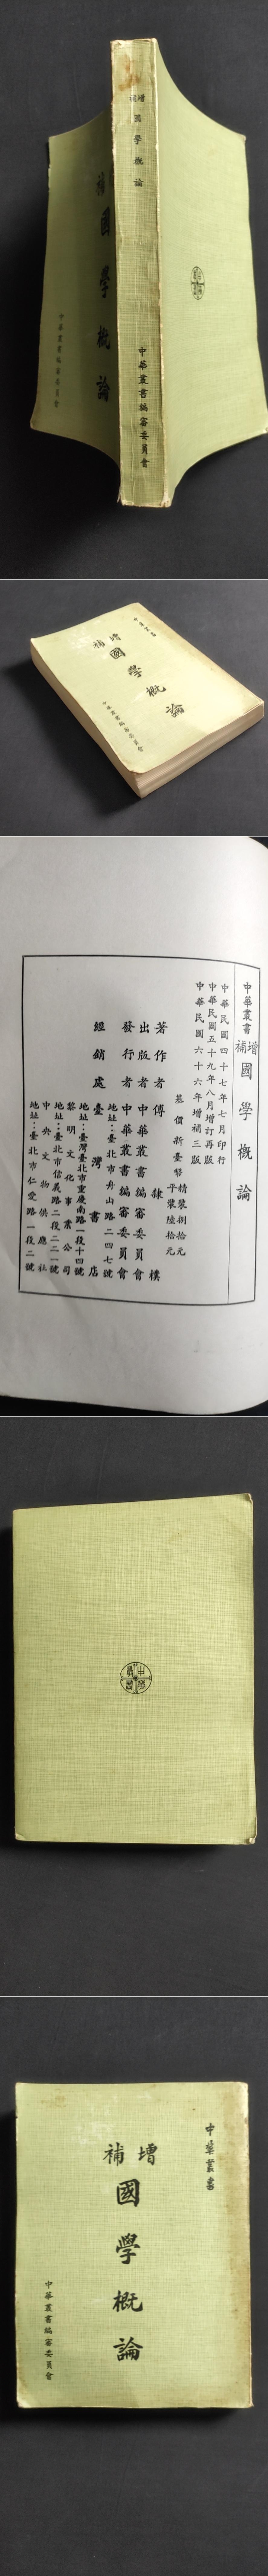 增補
國學概論
中華叢書編審委員會
補
國學概論
中華叢書編審委員會
中華叢書
增補
國學概論
中華叢書編審委員會
中華叢書
增補
國學概論
中華民國四十七年七月印行
中華民國五十九年八月增訂再版
中華民國六十六年增補三版
基價新臺幣
精裝捌拾元
平裝陸拾元
著作者 傅隸樸
出版者 中華叢書編審委員會
發行者 中華叢書編審委員會
地址：臺北市舟山路二四七號
經銷處 臺灣書店
地址：臺灣北市重慶南路一段十四號
黎明文化事業公司
地址：臺北市信義路二段二一號
中央文物供應社
地址：臺北市仁愛路一段二號
中華叢書
中華叢書
增補
國學概論
中華叢書編審委員會